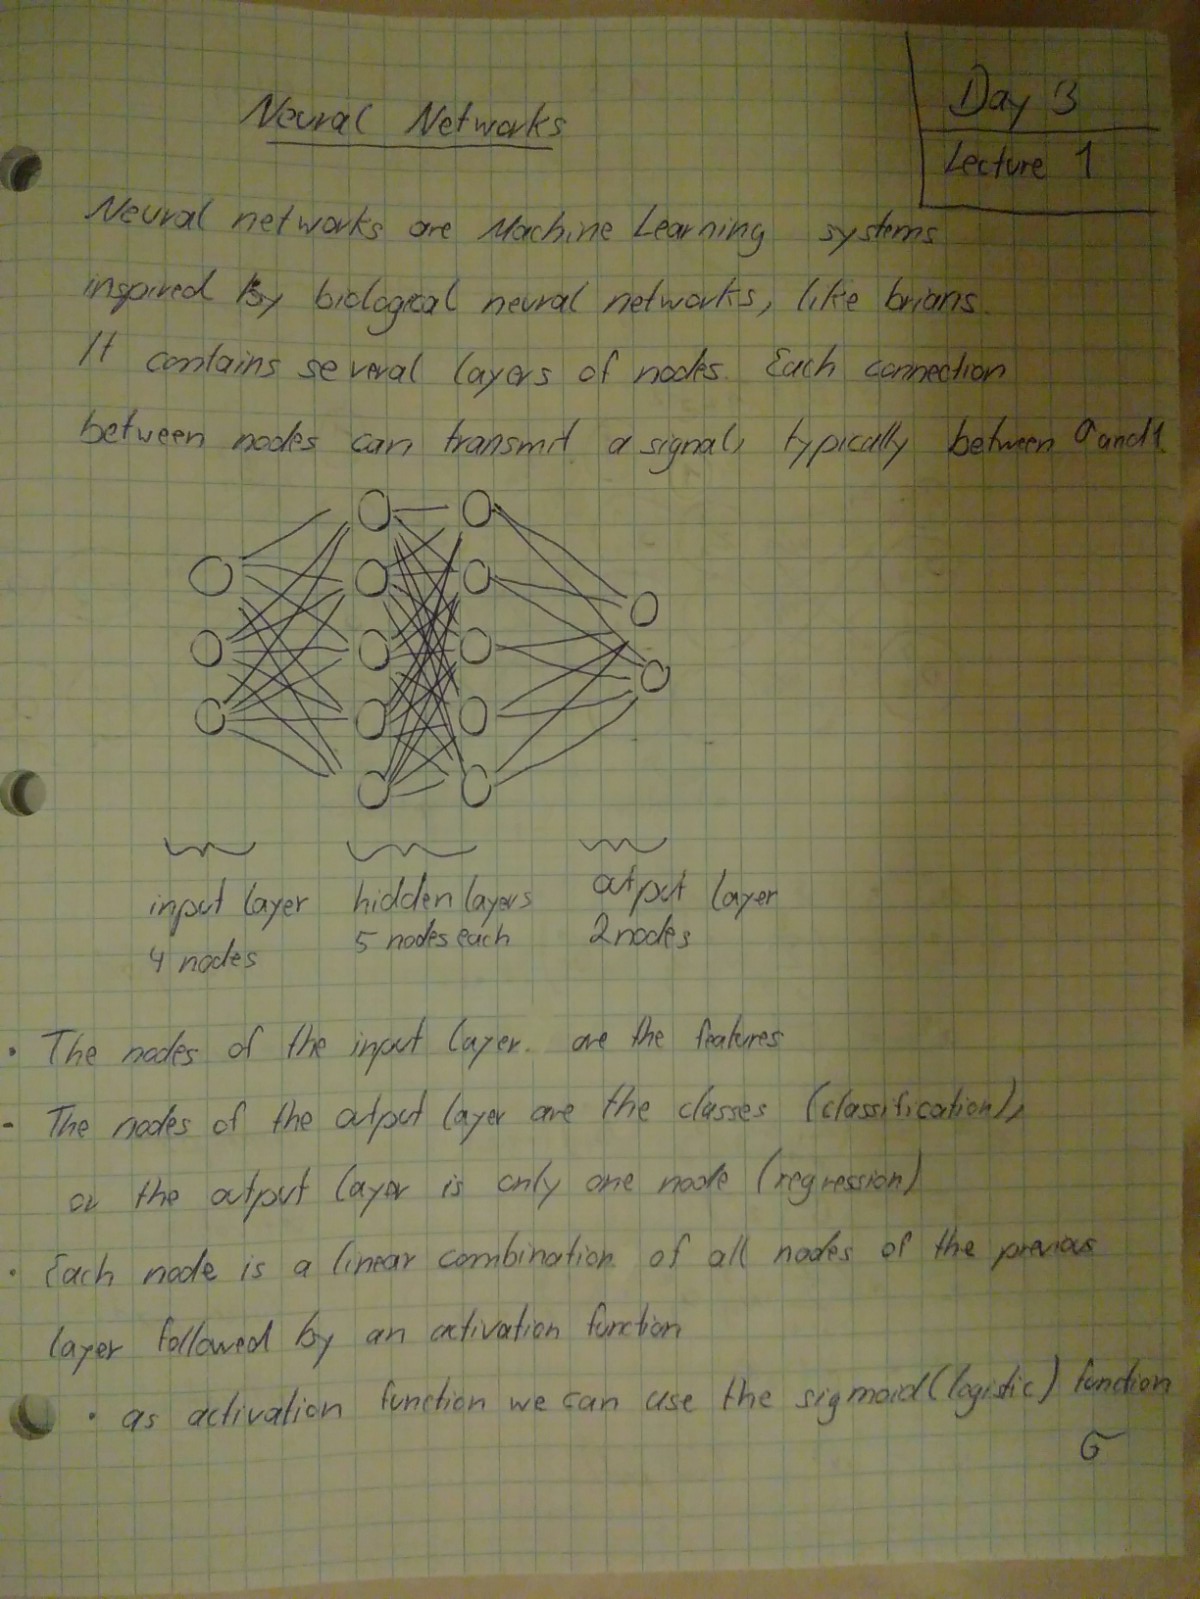 Neural Networks
Day 3
Lecture 1
Neural networks are Machine Learning systems
inspired by biological neural networks, like brians.
It contains several layers of nodes. Each connection
between nodes can transmit a signal, typically between 0 and 1.
input layer hidden layers output layer
4 nodes 5 nodes each 2 nodes
· The nodes of the input layer are the features
- The nodes of the output layer are the classes (classification),
or the output layer is only one node (regression)
· Each node is a linear combination of all nodes of the previous
layer followed by an activation function
· as activation function we can use the sigmoid (logistic) function
σ